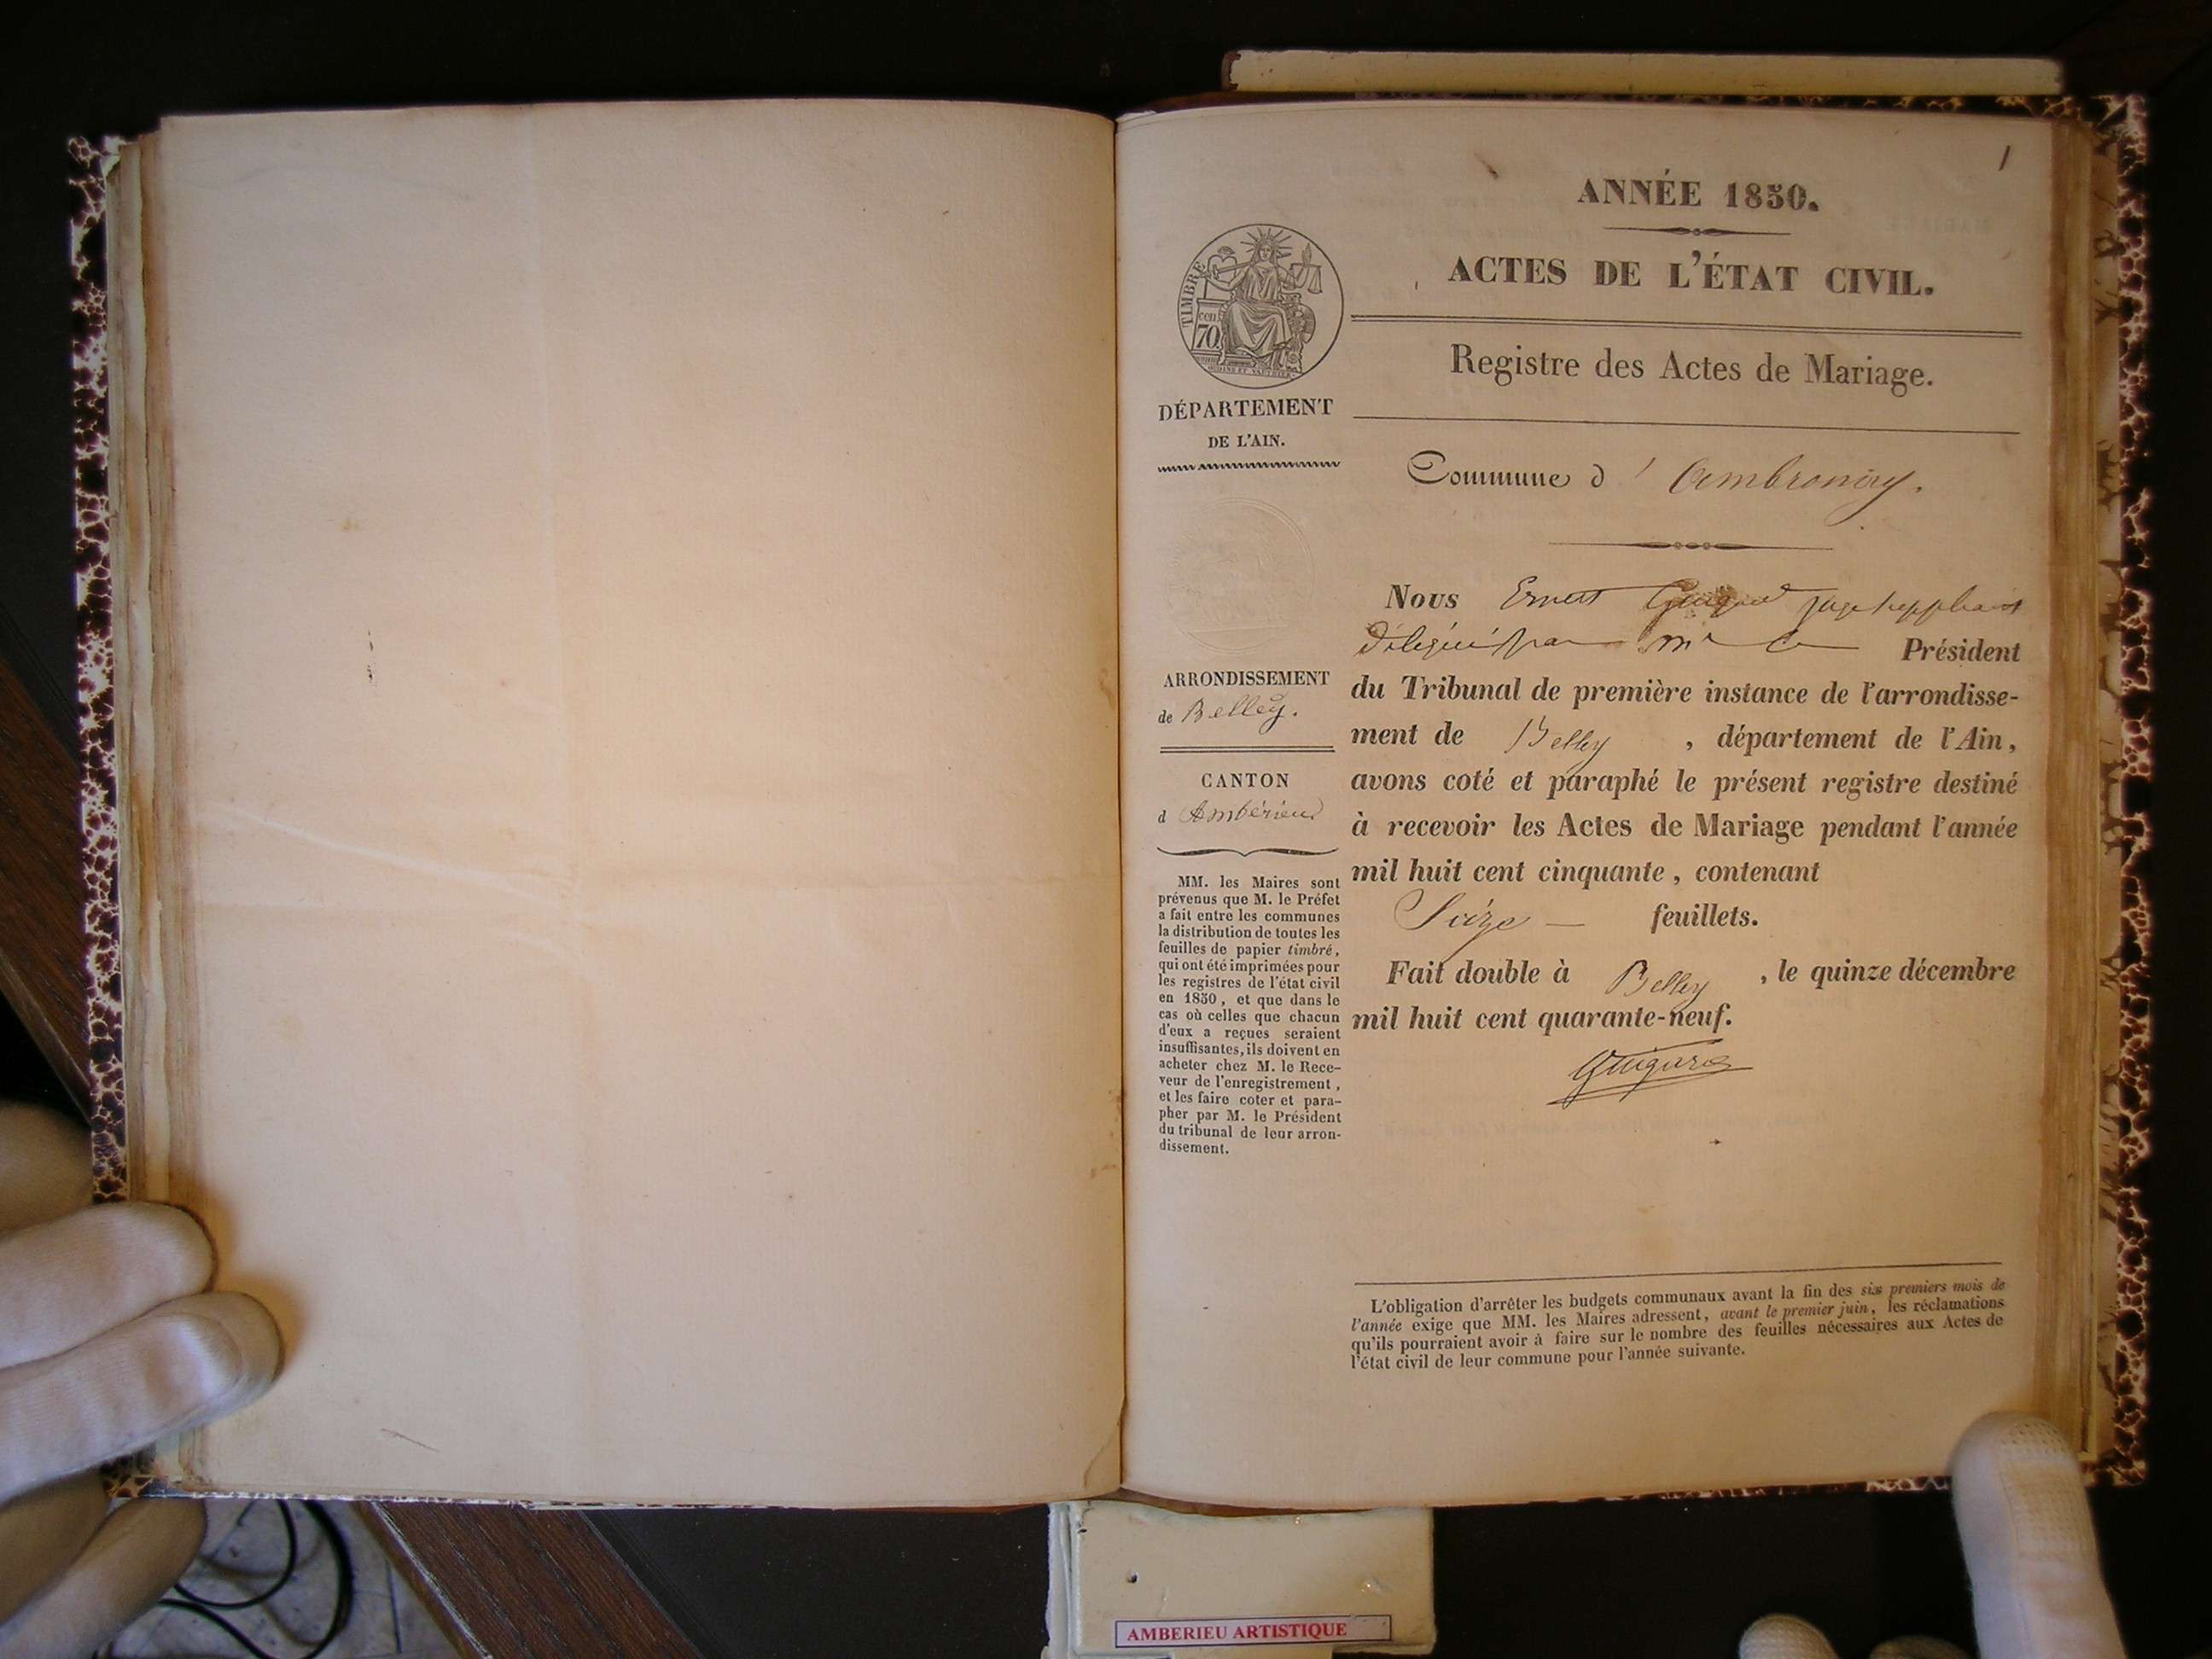 1
ANNÉE 1850.
ACTES DE L'ÉTAT CIVIL.
Registre des Actes de Mariage.
TIMBRE
cen
70.
DÉPARTEMENT
DE L'AIN.
Commune d' Ambronay.
ARRONDISSEMENT
de Belley.
CANTON
d Ambérieu
MM. les Maires sont
prévenus que M. le Préfet
a fait entre les communes
la distribution de toutes les
feuilles de papier timbré,
qui ont été imprimées pour
les registres de l'état civil
en 1850, et que dans le
cas où celles que chacun
d'eux a reçues seraient
insuffisantes, ils doivent en
acheter chez M. le Rece-
veur de l'enregistrement,
et les faire coter et para-
pher par M. le Président
du tribunal de leur arron-
dissement.
Nous Ernest Guigard juge suppléant
délégué par Mr le Président
du Tribunal de première instance de l'arrondisse-
ment de Belley, département de l'Ain,
avons coté et paraphé le présent registre destiné
à recevoir les Actes de Mariage pendant l'année
mil huit cent cinquante, contenant
Seize — feuillets.
Fait double à Belley, le quinze décembre
mil huit cent quarante-neuf.
Guigard
L'obligation d'arrêter les budgets communaux avant la fin des six premiers mois de
l'année exige que MM. les Maires adressent, avant le premier juin, les réclamations
qu'ils pourraient avoir à faire sur le nombre des feuilles nécessaires aux Actes de
l'état civil de leur commune pour l'année suivante.
AMBERIEU ARTISTIQUE